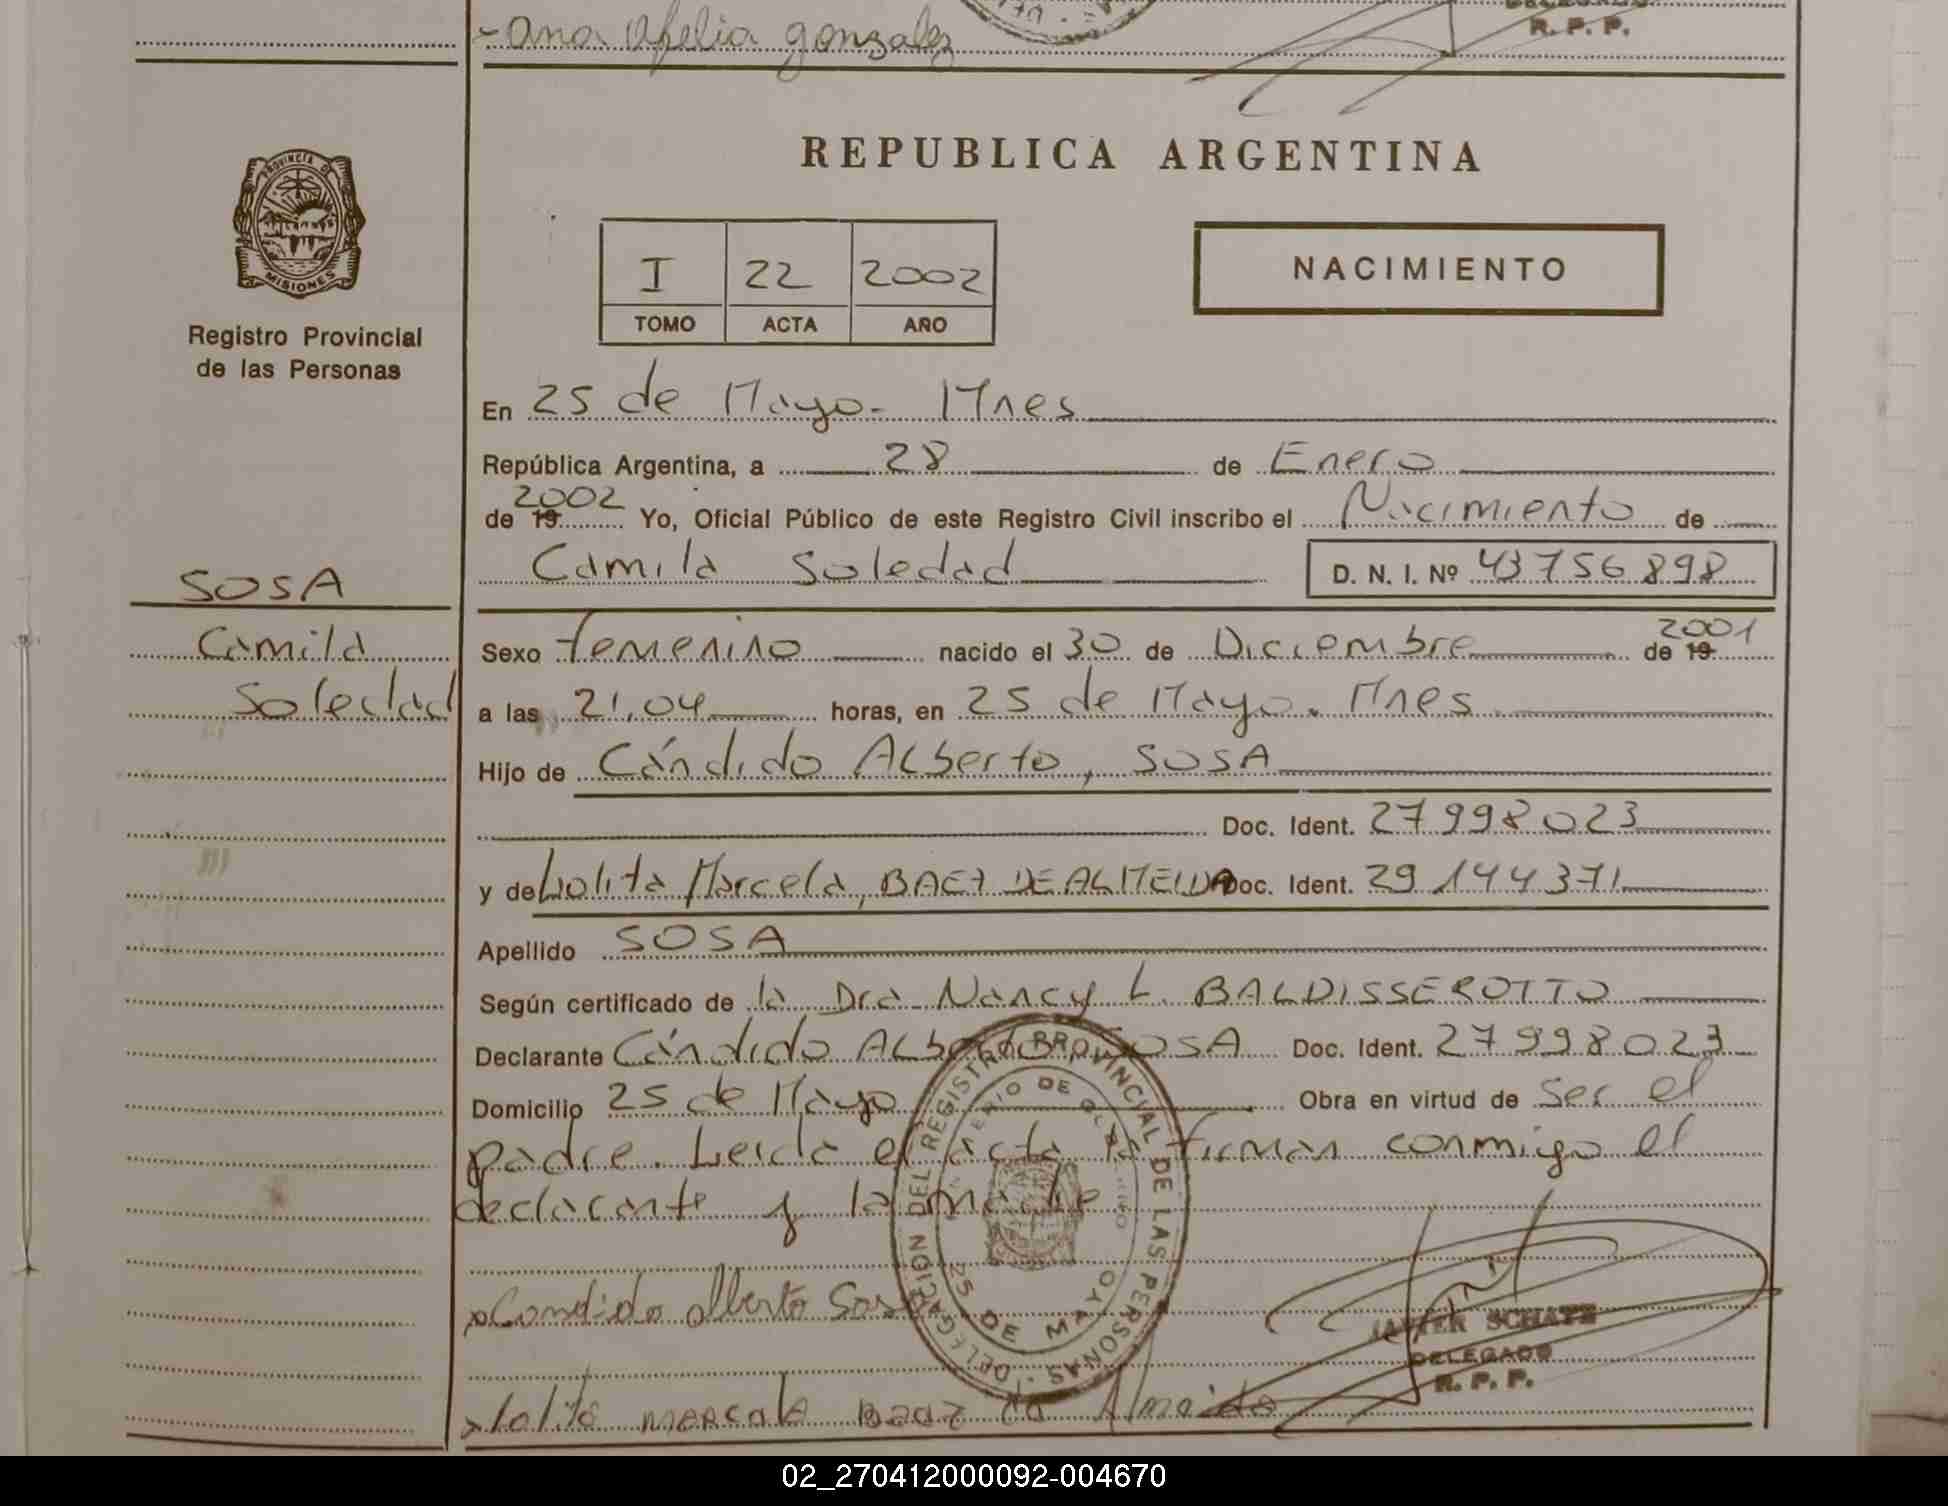 -Ana Ofelia gonzalez
R. P. P.
PROVINCIA DE
MISIONES
Registro Provincial
de las Personas
REPUBLICA ARGENTINA
I 22 2002
TOMO ACTA AÑO
NACIMIENTO
En 25 de Mayo - Mnes
República Argentina, a 28 de Enero
de 19 2002 Yo, Oficial Público de este Registro Civil inscribo el Nacimiento de
Camila Soledad D. N. I. Nº 43756898
SOSA
Camila
Soledad
Sexo Femenino nacido el 30 de Diciembre de 19 2001
a las 21,04 horas, en 25 de Mayo. Mnes
Hijo de Cándido Alberto, SOSA
Doc. Ident. 27998023
y de Lolita Marcela, BAEZ DE ALMEIDA Doc. Ident. 29144371
Apellido SOSA
Según certificado de la Dra Nancy L. BALDISSEROTTO
Declarante Cándido Alberto SOSA Doc. Ident. 27998023
Domicilio 25 de Mayo Obra en virtud de ser el
padre. Leida el acta la firman conmigo el
declarante y la madre
DELEGACION DEL REGISTRO PROVINCIAL DE LAS PERSONAS
25 DE MAYO
Candido alberto Sosa
JAVIER SCHATZ
DELEGADO
R. P. P.
Lolita marcela Baez de Almeida
02_270412000092-004670